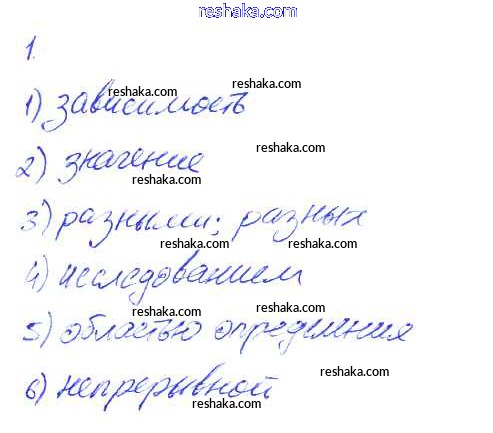 reshaka.com
1.
reshaka.com reshaka.com
1) зависимость
reshaka.com
2) значение
reshaka.com
reshaka.com
3) разными; разных
reshaka.com reshaka.com
4) исследованием
reshaka.com
reshaka.com
5) областью определения
reshaka.com
reshaka.com
6) непрерывной
reshaka.com